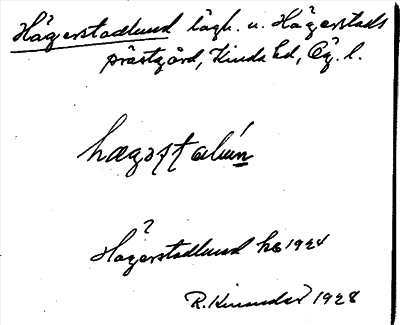 Hägerstadlund lägh. u. Hägerstads
prästgård, Kinda hd, Ög. l.
hægəstalún
?
Hägerstadlund hs 1924
R. Kinander 1928